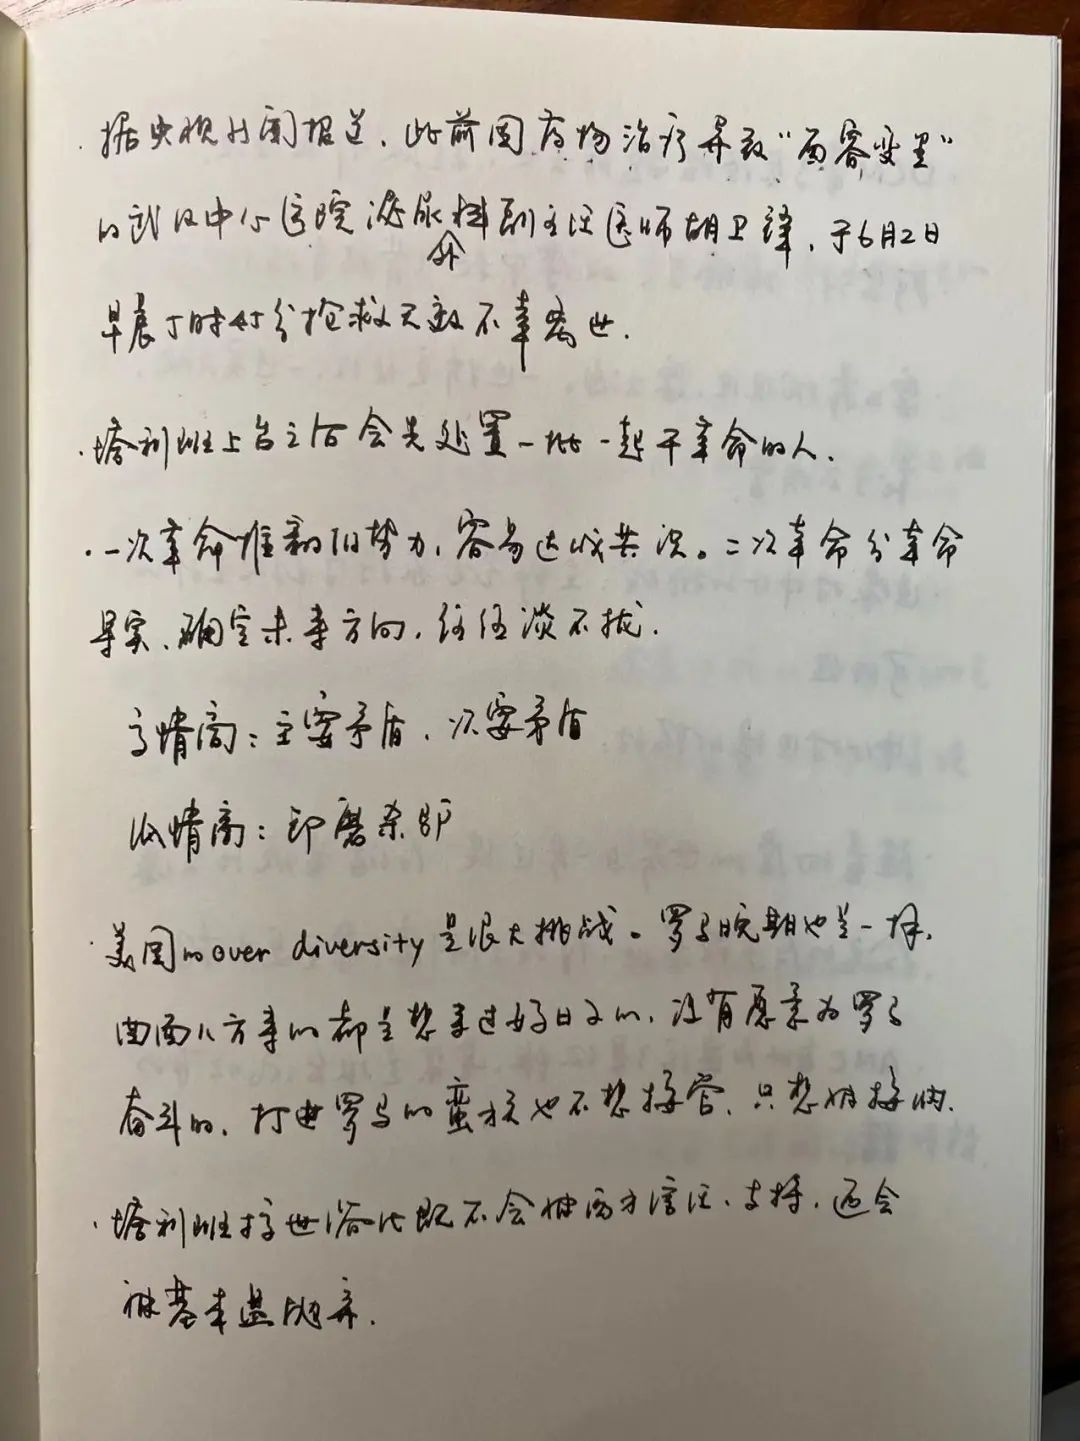 · 据央视新闻报道,此前因药物治疗导致“面容变黑”
的武汉中心医院泌尿外科副主任医师胡卫锋,于6月2日
早晨5时45分抢救无效不幸离世.
· 塔利班上台之后会先处置一批一起干革命的人.
· 一次革命推翻旧势力,容易达成共识。二次革命分革命
果实、确定未来方向,往往谈不拢.
高情商:主要矛盾、次要矛盾
低情商:卸磨杀驴
· 美国的over diversity是很大挑战。罗马晚期也是一样,
四面八方来的都是想来过好日子的,没有愿意为罗马
奋斗的,打进罗马的蛮族也不想接管,只想被接纳.
· 塔利班搞世俗化既不会被西方信任、支持,还会
被基本盘抛弃.